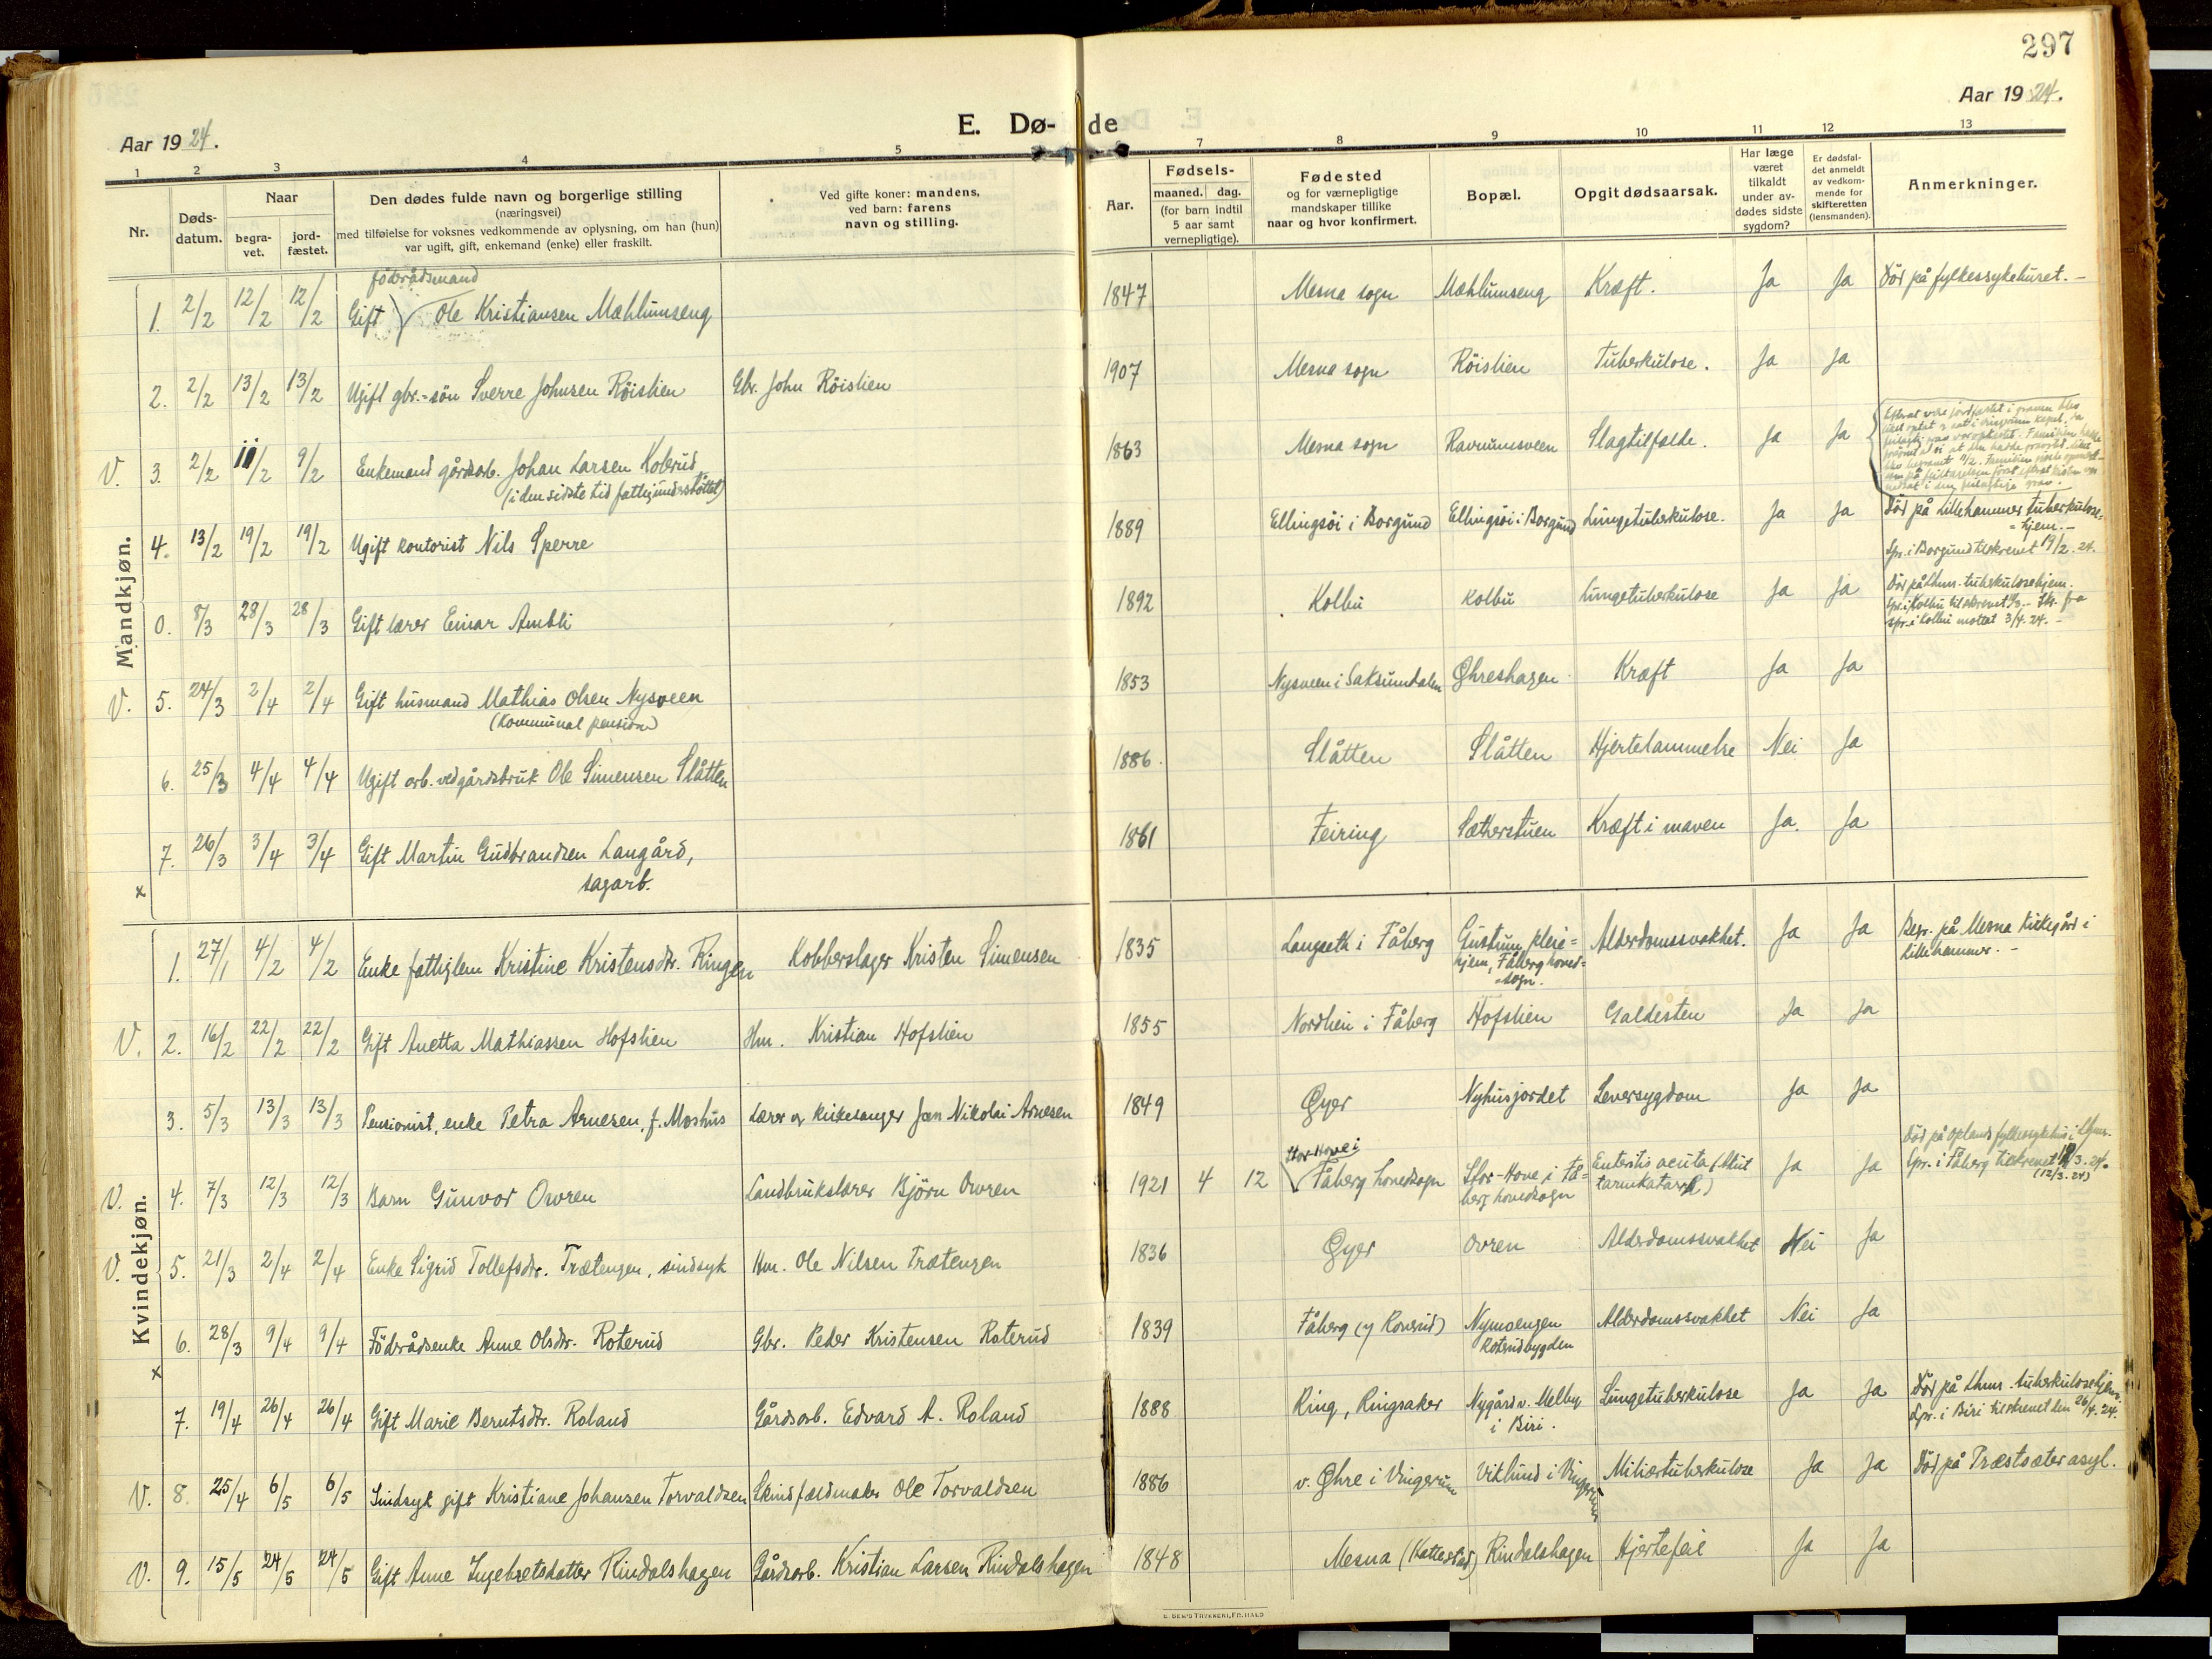 297
Aar 1924.
E. Dø-de
Aar 1924.
1 2 3 4 5 7 8 9 10 11 12 13
Nr.
Døds-
datum.
Naar
begra-
vet.
jord-
fæstet.
Den dødes fulde navn og borgerlige stilling
(næringsvei)
med tilføielse for voksnes vedkommende av oplysning, om han (hun)
var ugift, gift, enkemand (enke) eller fraskilt.
Ved gifte koner: mandens,
ved barn: farens
navn og stilling.
Aar.
Fødsels-
maaned. dag.
(for barn indtil
5 aar samt
vernepligtige).
Fødested
og for værnepligtige
mandskaper tillike
naar og hvor konfirmert.
Bopæl.
Opgit dødsaarsak.
Har læge
været
tilkaldt
under av-
dødes sidste
sygdom?
Er dødsfal-
det anmeldt
av vedkom-
mende for
skifteretten
(lensmanden).
Anmerkninger.
Mandkjøn.
föderådsmand
1. 2/2 12/2 12/2 Gift Ole Kristiansen Mæhlumseng 1847 Mesna sogn Mæhlumseng Kræft. Ja Ja Död på fylkessykehuset. -
2. 2/2 13/2 13/2 Ugift gbr.-sön Sverre Johnsen Röislien Gbr. John Röislien 1907 Mesna sogn Röislien Tuberkulose. Ja Ja
V. 3. 2/2 11/2 9/2 Enkemand gårdsarb. Johan Larsen Kolerud 1863 Mesna sogn Ravnumsveen Slagtilfælde. Ja Ja
(i den sidste tid fattigunderstöttet)
4. 13/2 19/2 19/2 Ugift kontorist Nils Sperre 1889 Ellingsöi i Borgund Ellingsöi i Borgund Lungetuberkulose. Ja Ja Död på Lillehammer tuberkulose-
hjem. -
Spr. i Borgund tilskrevet 19/2. 24.
0. 8/3 28/3 28/3 Gift lærer Einar Ambli 1892 Kolbu Kolbu Lungetuberkulose Ja Ja Död på Lhmr. tuberkulosehjem.
spr. i Kolbu mottat 3/4. 24. -
V. 5. 24/3 2/4 2/4 Gift husmand Mathias Olsen Nysveen 1853 Nysveen i Saksumdalen Øhreshagen Kræft Ja Ja
(Kommunal pension)
6. 25/3 4/4 4/4 Ugift arb. ved gårdsbruk Ole Simensen Slåtten 1886. Slåtten Slåtten Hjertelammelse Nei Ja
7. 26/3 3/4 3/4 Gift Martin Gudbrandsen Langård, 1861 Feiring Sætherstuen Kræft i maven Ja. Ja
sagarb.
x
Kvindekjøn.
1. 27/1 4/2 4/2 Enke fattiglem Kristine Kristensdtr. Ringen Kobberslager Kristen Simensen 1835 Langseth i Fåberg Gustum pleie-
hjem, Fåberg hoved-
sogn. Alderdomssvakhet. Ja Ja Begr. på Mesna kirkegård i
Lillehammer. -
V. 2. 16/2 22/2 22/2 Gift Anetta Mathiassen Hofslien Hm. Kristian Hofslien 1855 Nordlien i Fåberg Hofslien Galdesten Ja Ja
3. 5/3 13/3 13/3 Pensionist, enke Petra Arnesen, f. Moshus Lærer og kirkesanger Jan Nikolai Arnesen 1849 Øyer Nyhusjordet Leversygdom Ja Ja
V. 4. 7/3 12/3 12/3 Barn Gunvor Owren Landbrukslærer Björn Owren 1921 4 12 Stor-Hove i
Fåberg hovedsogn Stor-Hove i Få-
berg hovedsogn Enteritis acuta (Akut
tarmkatarrh) Ja Ja Död på Oplands fylkessykehus i Lhmr.
Spr. i Fåberg tilskrevet 3. 24.
(12/3. 24)
V. 5. 21/3 2/4 2/4 Enke Sigrid Tollefsdtr. Trætengen, sindsyk Hm. Ole Nilsen Trætengen 1836 Øyer Ovren Alderdomssvakhet Nei Ja
6. 28/3 9/4 9/4 Föderådsenke Anne Olsdtr. Roterud Gbr. Peder Kristensen Roterud 1839 Fåberg Nymoengen
Roterudbygden Alderdomssvakhet Nei Ja
x
7. 19/4 26/4 26/4 Gift Marie Berntsdtr. Roland Gårdsarb. Edvard A. Roland 1888 Ring, Ringsaker Nygård v. Melby
i Biri. Lungetuberkulose Ja Ja Död på Lhmr. tuberkulosehjem.
Spr. i Biri tilskrevet den 26/4. 24.
V. 8. 25/4 6/5 6/5 Sindsyk gift Kristiane Johansen Torvaldsen Skindfældmaker Ole Torvaldsen 1886 v. Øhre i Vingrom Viklund i Vingrom Miliærtuberkulose Ja Ja Död på Præstsæter asyl.
V. 9. 15/5 24/5 24/5 Gift Anne Ingebretsdatter Rindalshagen Gårdsarb. Kristian Larsen Rindalshagen 1848 Mesna (Kattestad) Rindalshagen Hjertefeil Ja Ja